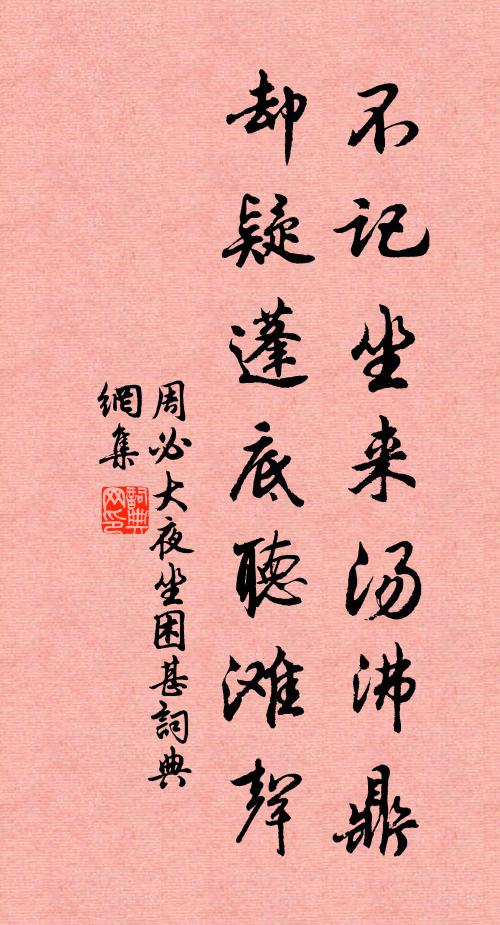 不记坐来汤沸鼎
却疑蓬底聽滩聲
周必大夜坐困甚詞典
網集
詞典
网印